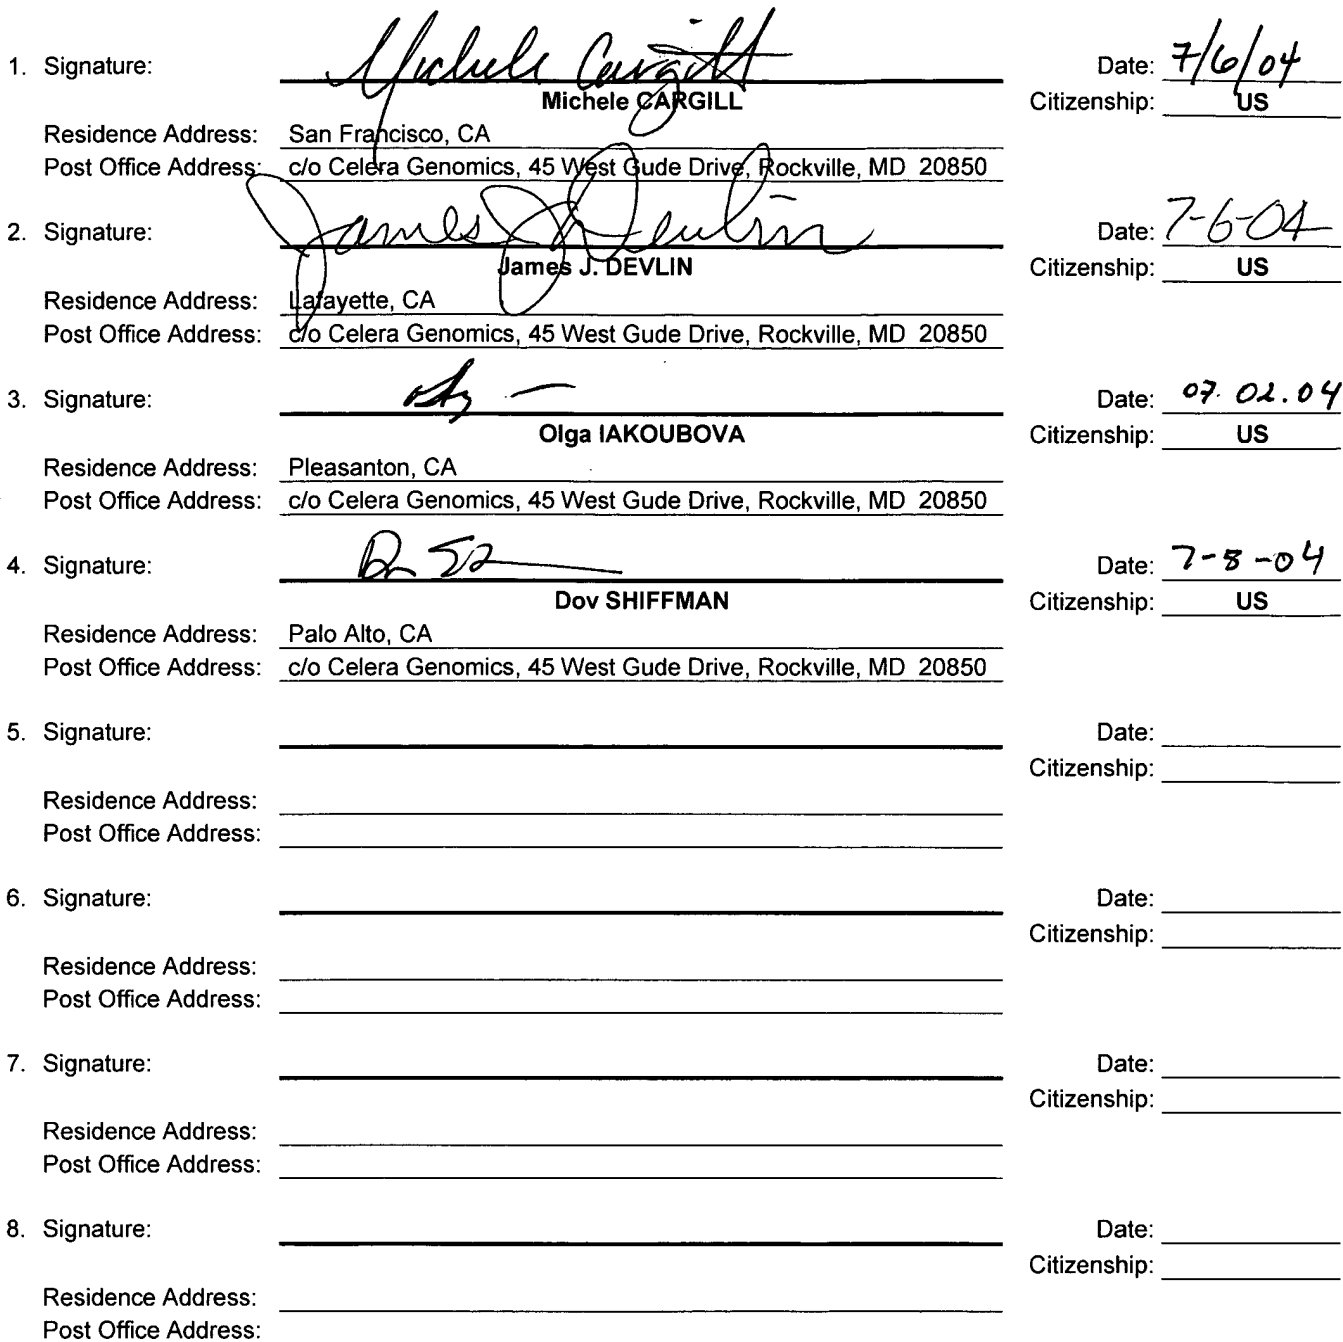 1. Signature: Michele Cargill Date: 7/6/04
Michele CARGILL Citizenship: US
Residence Address: San Francisco, CA
Post Office Address: c/o Celera Genomics, 45 West Gude Drive, Rockville, MD 20850
2. Signature: James J Devlin Date: 7-6-04
James J. DEVLIN Citizenship: US
Residence Address: Lafayette, CA
Post Office Address: c/o Celera Genomics, 45 West Gude Drive, Rockville, MD 20850
3. Signature: Date: 07.02.04
Olga IAKOUBOVA Citizenship: US
Residence Address: Pleasanton, CA
Post Office Address: c/o Celera Genomics, 45 West Gude Drive, Rockville, MD 20850
4. Signature: Date: 7-8-04
Dov SHIFFMAN Citizenship: US
Residence Address: Palo Alto, CA
Post Office Address: c/o Celera Genomics, 45 West Gude Drive, Rockville, MD 20850
5. Signature: Date:
Citizenship:
Residence Address:
Post Office Address:
6. Signature: Date:
Citizenship:
Residence Address:
Post Office Address:
7. Signature: Date:
Citizenship:
Residence Address:
Post Office Address:
8. Signature: Date:
Citizenship:
Residence Address:
Post Office Address: